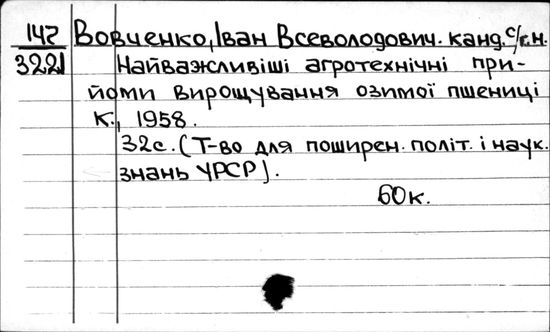 147 Вовченко, Іван Всеволодович. канд. с/г. н.
3221 Найважливіші агротехнічні при-
йоми вирощування озимої пшениці
К., 1958.
32с. (Т-во для поширен. політ. і наук.
знань УРСР).
60к.